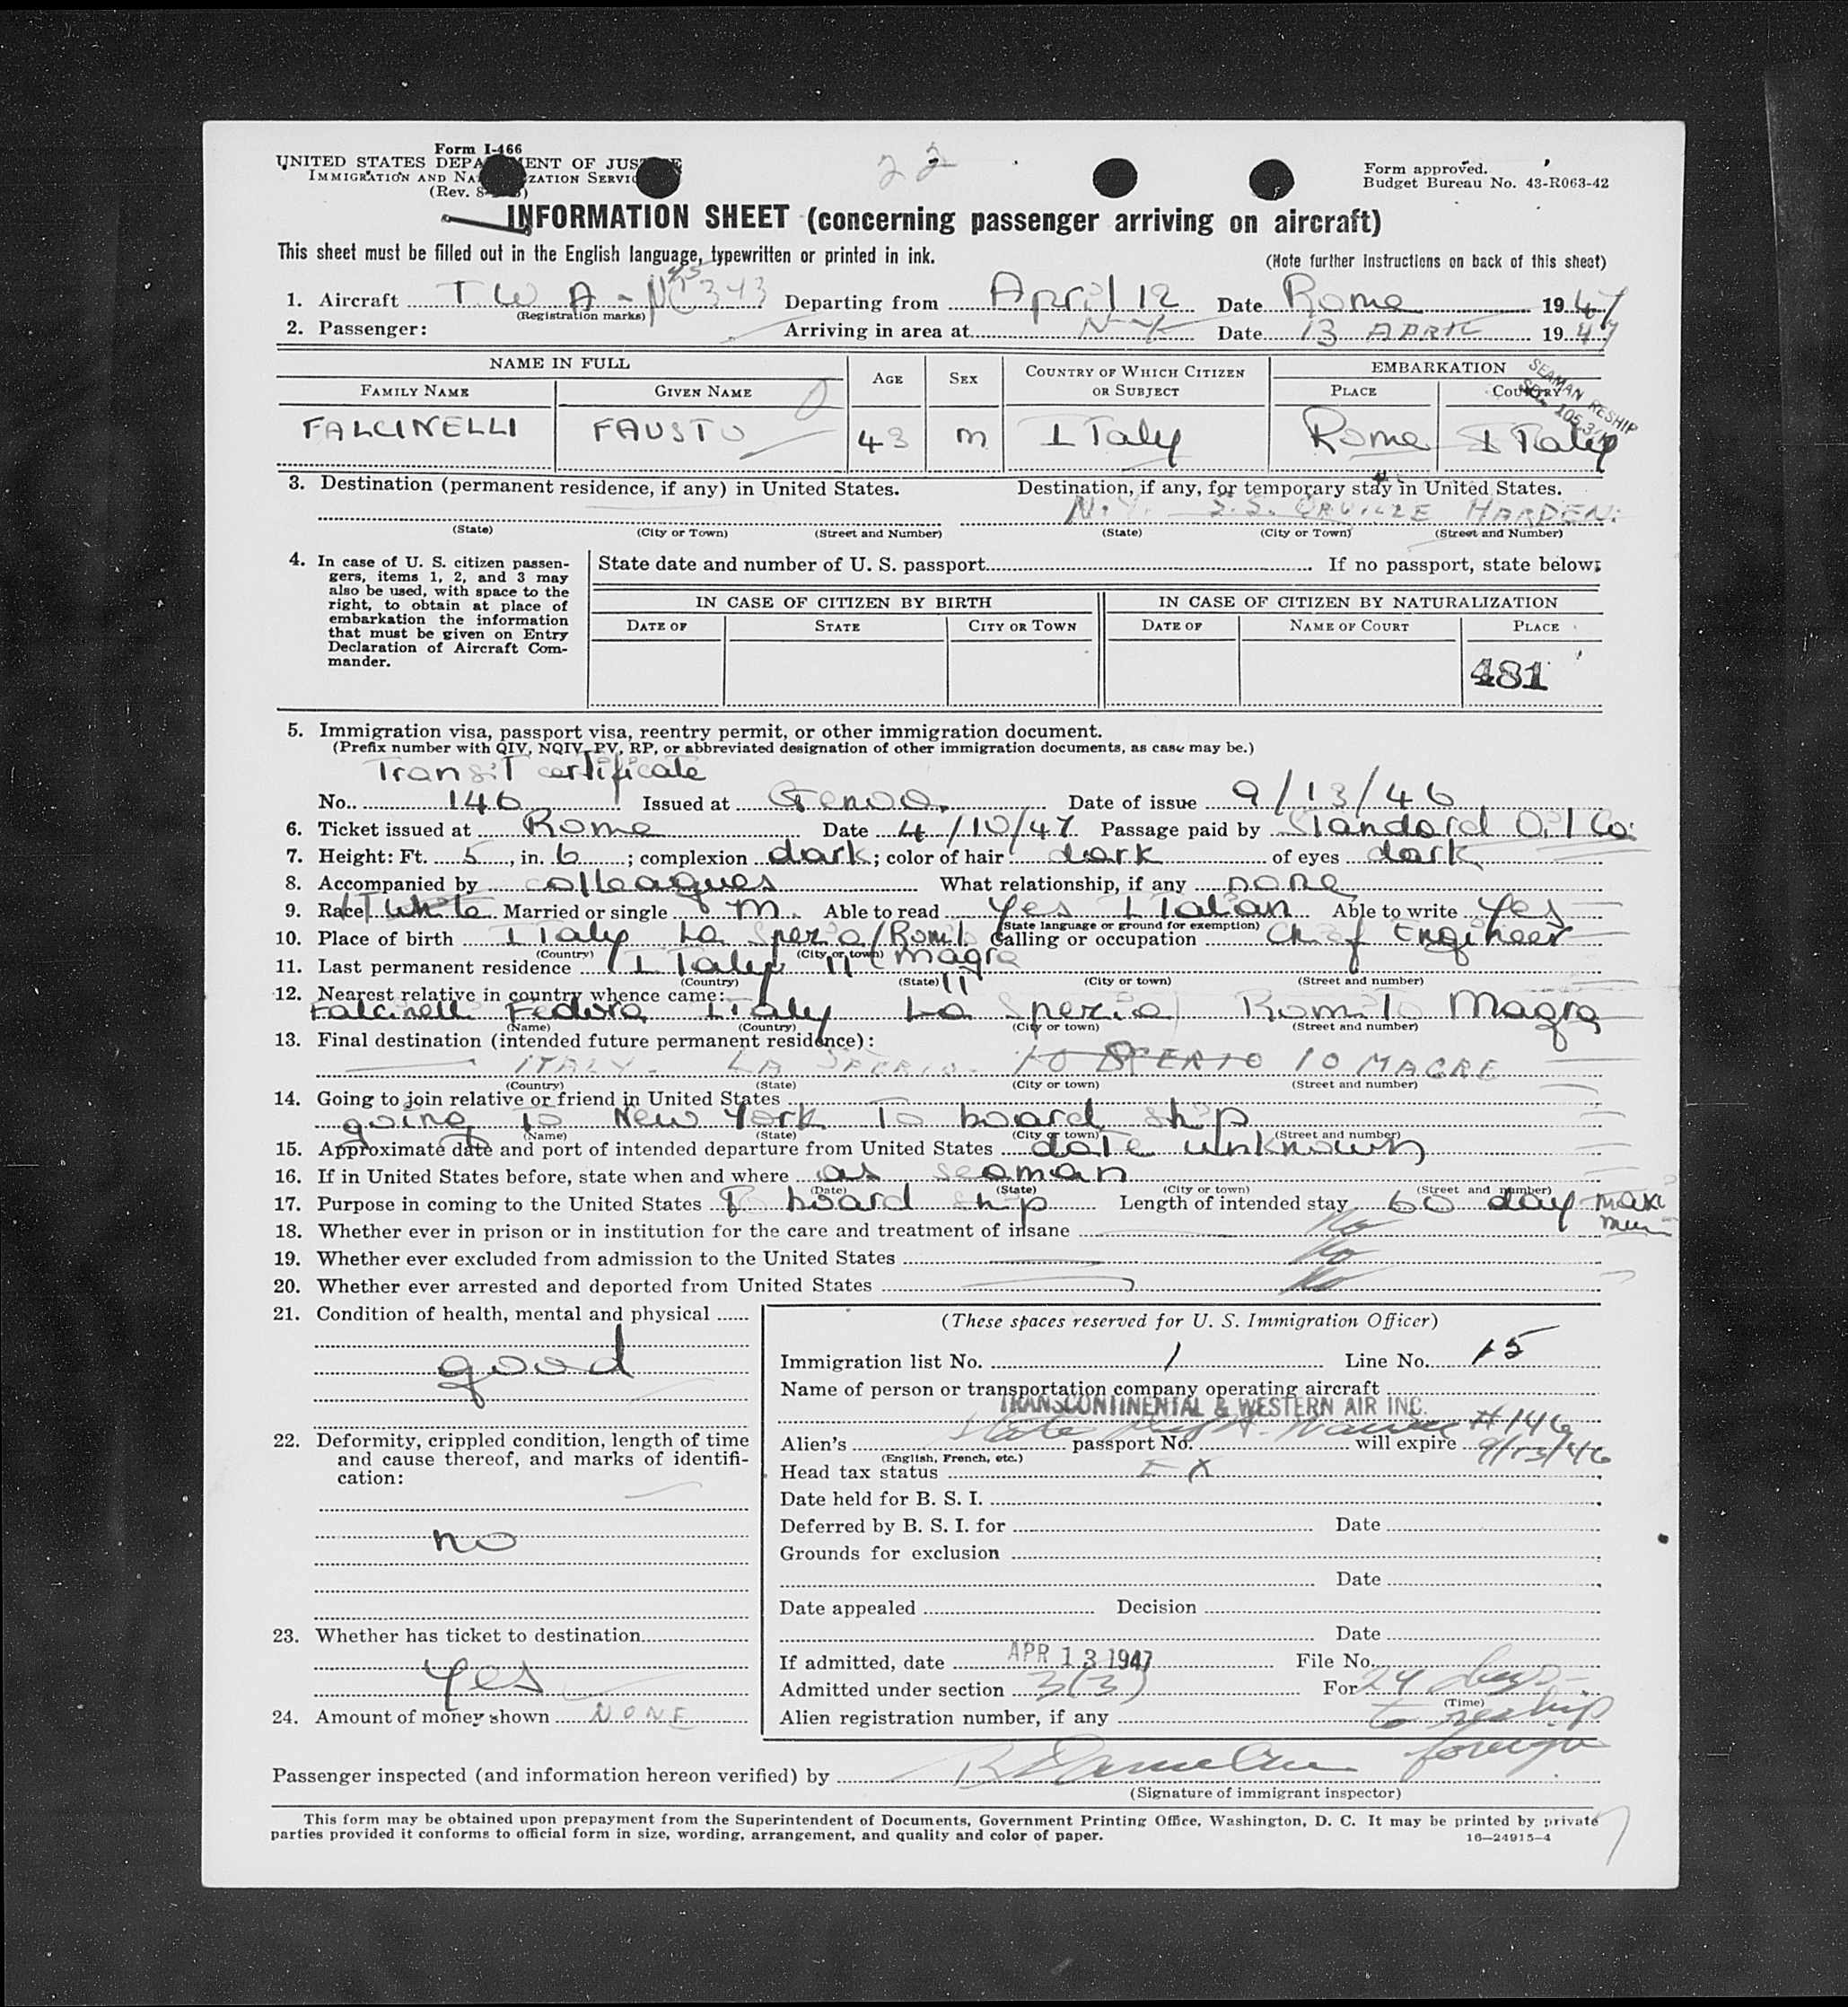 Form I-466
UNITED STATES DEPARTMENT OF JUSTICE
IMMIGRATION AND NATURALIZATION SERVICE
(Rev.
22
Form approved.
Budget Bureau No. 43-R063-42
INFORMATION SHEET (concerning passenger arriving on aircraft)
This sheet must be filled out in the English language, typewritten or printed in ink. (Note further instructions on back of this sheet)
1. Aircraft T W A - Departing from April 12 Date Rome 1947
(Registration marks)
2. Passenger: Arriving in area at N-Y Date 13 APRIL 1947
NAME IN FULL AGE SEX COUNTRY OF WHICH CITIZEN OR SUBJECT EMBARKATION
FAMILY NAME GIVEN NAME PLACE COUNTRY
SEAMAN RESHIP
FALCINELLI FAUSTO 43 m ITaly Rome ITaly
3. Destination (permanent residence, if any) in United States. Destination, if any, for temporary stay in United States.
N.Y. S.S. ORVILLE HARDEN.
(State) (City or Town) (Street and Number) (State) (City or Town) (Street and Number)
4. In case of U. S. citizen passengers, items 1, 2, and 3 may also be used, with space to the right, to obtain at place of embarkation the information that must be given on Entry Declaration of Aircraft Commander.
State date and number of U. S. passport If no passport, state below:
IN CASE OF CITIZEN BY BIRTH IN CASE OF CITIZEN BY NATURALIZATION
DATE OF STATE CITY OR TOWN DATE OF NAME OF COURT PLACE
481
5. Immigration visa, passport visa, reentry permit, or other immigration document.
(Prefix number with QIV, NQIV, PV, RP, or abbreviated designation of other immigration documents, as case may be.)
TransiT certificate
No. 146 Issued at Genoa. Date of issue 9/13/46
6. Ticket issued at Rome Date 4/10/47 Passage paid by Standard Oil Co.
7. Height: Ft. 5, in. 6; complexion dark; color of hair dark of eyes dark
8. Accompanied by colleagues What relationship, if any none
9. Race White Married or single m. Able to read yes ITalian Able to write yes
(State language or ground for exemption)
10. Place of birth ITaly La Spezia/ Calling or occupation Chief Engineer
(Country) (City or town)
11. Last permanent residence ITaly " Magra "
(Country) (State) (City or town) (Street and number)
12. Nearest relative in country whence came:
Falcinelli Fedora ITaly La Spezia Romito Magra
(Name) (Country) (City or town) (Street and number)
13. Final destination (intended future permanent residence):
ITALY - LA SPEZIA. 10 MAGRE
(Country) (State) (City or town) (Street and number)
14. Going to join relative or friend in United States
going To New York To board ship
(Name) (State) (City or town) (Street and number)
15. Approximate date and port of intended departure from United States date unknown
16. If in United States before, state when and where as seaman
(Date) (State) (City or town) (Street and number)
17. Purpose in coming to the United States To board ship Length of intended stay 60 day maximum
18. Whether ever in prison or in institution for the care and treatment of insane No
19. Whether ever excluded from admission to the United States No
20. Whether ever arrested and deported from United States No
21. Condition of health, mental and physical
good
22. Deformity, crippled condition, length of time and cause thereof, and marks of identification:
no
23. Whether has ticket to destination
yes
24. Amount of money shown NONE
(These spaces reserved for U. S. Immigration Officer)
Immigration list No. 1 Line No. 15
Name of person or transportation company operating aircraft
TRANSCONTINENTAL & WESTERN AIR INC.
State Dept. #146
Alien's passport No. will expire 9/13/46
(English, French, etc.)
Head tax status EX
Date held for B. S. I.
Deferred by B. S. I. for Date
Grounds for exclusion
Date
Date appealed Decision
Date
If admitted, date APR 13 1947 File No.
Admitted under section 3(3) For 24 days
(Time)
to reship
Alien registration number, if any
foreign
Passenger inspected (and information hereon verified) by
(Signature of immigrant inspector)
This form may be obtained upon prepayment from the Superintendent of Documents, Government Printing Office, Washington, D. C. It may be printed by private
parties provided it conforms to official form in size, wording, arrangement, and quality and color of paper. 16—24915-4